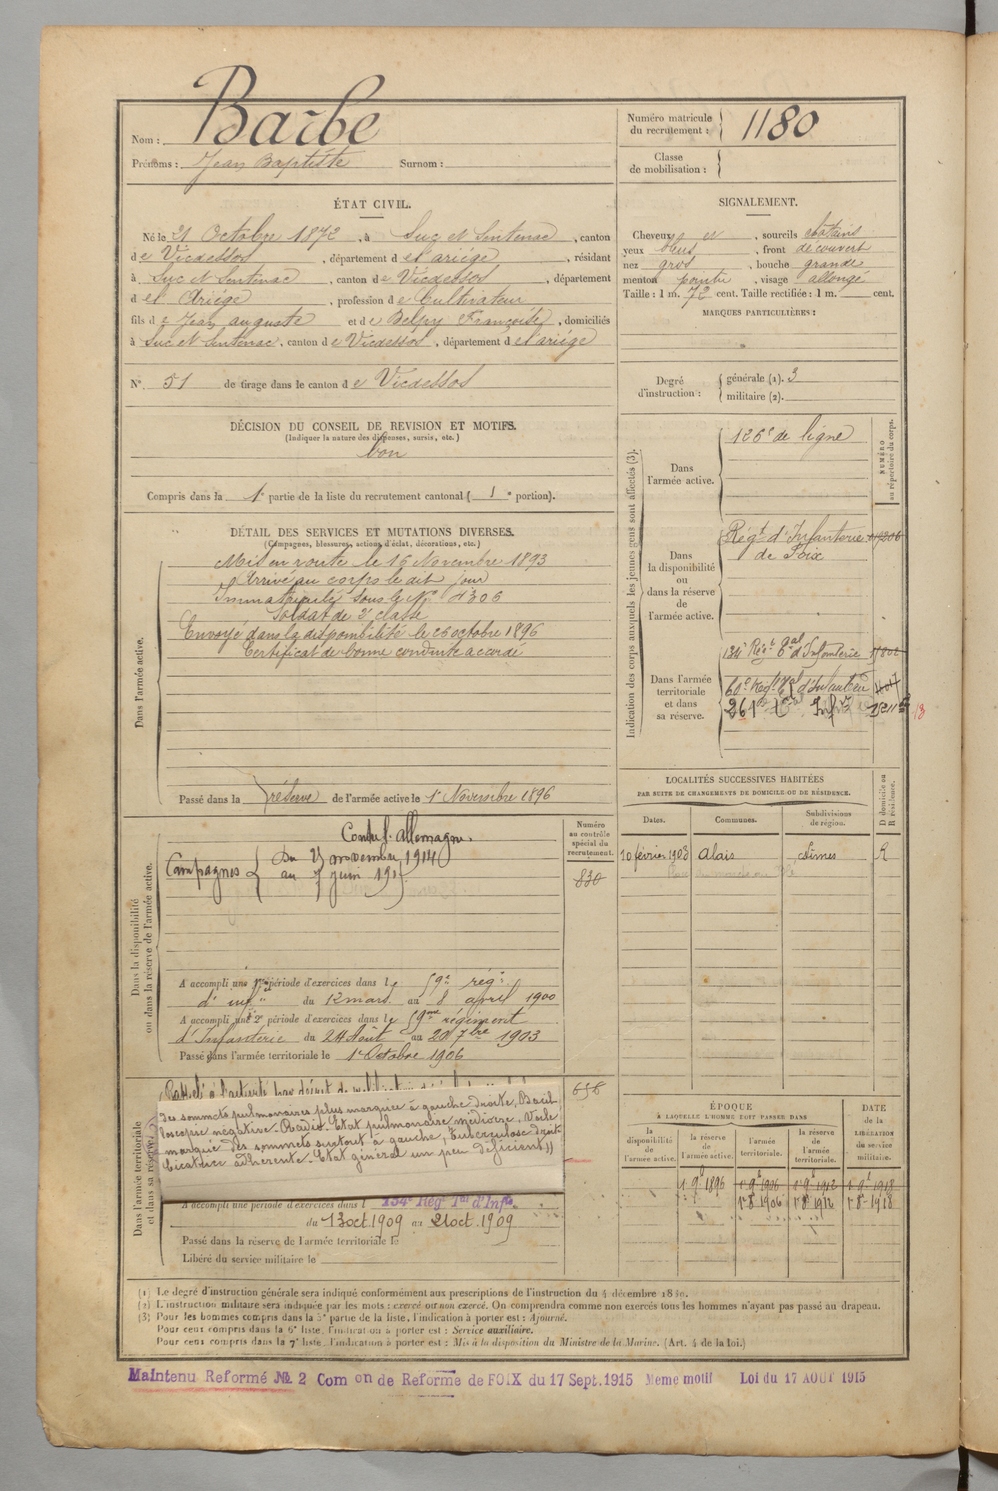 Nom : Barbe
Prénoms : Jean Baptiste Surnom :
Numéro matricule du recrutement : 1180
Classe de mobilisation :
ÉTAT CIVIL.
Né le 21 Octobre 1872, à Suc et Sentenac, canton
de Vicdessos, département de l'ariège, résidant
à Suc et Sentenac, canton de Vicdessos, département
de l'Ariège, profession de Cultivateur
fils de Jean auguste et de Belpy Françoise, domiciliés
à Suc et Sentenac, canton de Vicdessos, département de l'ariège
N° 51 de tirage dans le canton de Vicdessos
SIGNALEMENT.
Cheveux et, sourcils chatains
yeux bleus, front découvert
nez gros, bouche grande
menton pointu, visage allongé
Taille : 1 m. 72 cent. Taille rectifiée : 1 m. cent.
MARQUES PARTICULIÈRES :
Degré d'instruction : générale (1). 3
militaire (2).
DÉCISION DU CONSEIL DE REVISION ET MOTIFS.
(Indiquer la nature des dispenses, sursis, etc.)
bon
Compris dans la 1e partie de la liste du recrutement cantonal ( 1 e portion).
DÉTAIL DES SERVICES ET MUTATIONS DIVERSES.
(Campagnes, blessures, actions d'éclat, décorations, etc.)
Dans l'armée active.
Mis en route le 16 Novembre 1893
Arrivé au corps le dit jour
Immatriculé sous le N° 4306
Soldat de 2e classe
Envoyé dans la disponibilité le 26 octobre 1896
Certificat de bonne conduite accordé
Passé dans la réserve de l'armée active le 1er Novembre 1896
Indication des corps auxquels les jeunes gens sont affectés (3).
NUMÉRO au répertoire du corps.
Dans l'armée active.
126e de ligne
Dans la disponibilité ou dans la réserve de l'armée active.
Régt d'Infanterie
de Foix
Dans l'armée territoriale et dans sa réserve.
134e Régt Tal d'Infanterie
60e Régt Tal d'Infanterie
261e Tal Infie
LOCALITÉS SUCCESSIVES HABITÉES
PAR SUITE DE CHANGEMENTS DE DOMICILE OU DE RÉSIDENCE.
D domicile ou R résidence.
Dates. Communes. Subdivisions de région.
10 février 1903 Alais Nimes R
Dans la disponibilité ou dans la réserve de l'armée active.
Numéro au contrôle spécial du recrutement.
830
Contre l'Allemagne.
Campagnes
Du 25 novembre 1914
au 7 juin 1915
A accompli une 1re période d'exercices dans le 59e rég.t
d'infie du 12 mars au 8 april 1900
A accompli une 2e période d'exercices dans le 59me régiment
d'Infanterie du 24 Août au 20 7bre 1903
Passé dans l'armée territoriale le 1er Octobre 1906
Dans l'armée territoriale et dans sa réserve.
656
Rappelé à l'activité par décret de mobilisation
des sommets pulmonaires plus marquée à gauche droite, Bacil
loscopie négative. Radio. Etat pulmonaire médiocre, Voile
marqué des sommets surtout à gauche, Tuberculose
Cicatrice adhérente. Etat général un peu déficient »
A accompli une période d'exercices dans le 134e Rég Tal d'Infie
du 13 oct 1909 au 21 oct 1909
Passé dans la réserve de l'armée territoriale le
Libéré du service militaire le
ÉPOQUE
À LAQUELLE L'HOMME DOIT PASSER DANS
DATE de la LIBÉRATION du service militaire.
la disponibilité de l'armée active. la réserve de l'armée active. l'armée territoriale. la réserve de l'armée territoriale.
1er 9b 1896 1er 9b 1906 1er 9b 1912 1er 9b 1918
1er 8b 1906 1er 8b 1912 1er 8b 1918
(1) Le degré d'instruction générale sera indiqué conformément aux prescriptions de l'instruction du 4 décembre 1889.
(2) L'instruction militaire sera indiquée par les mots : exercé ou non exercé. On comprendra comme non exercés tous les hommes n'ayant pas passé au drapeau.
(3) Pour les hommes compris dans la 5e partie de la liste, l'indication à porter est : Ajourné.
Pour ceux compris dans la 6e liste, l'indication à porter est : Service auxiliaire.
Pour ceux compris dans la 7e liste, l'indication à porter est : Mis à la disposition du Ministre de la Marine. (Art. 4 de la loi.)
Maintenu Reformé № 2 Com on de Reforme de FOIX du 17 Sept. 1915 Meme motif Loi du 17 AOUT 1915